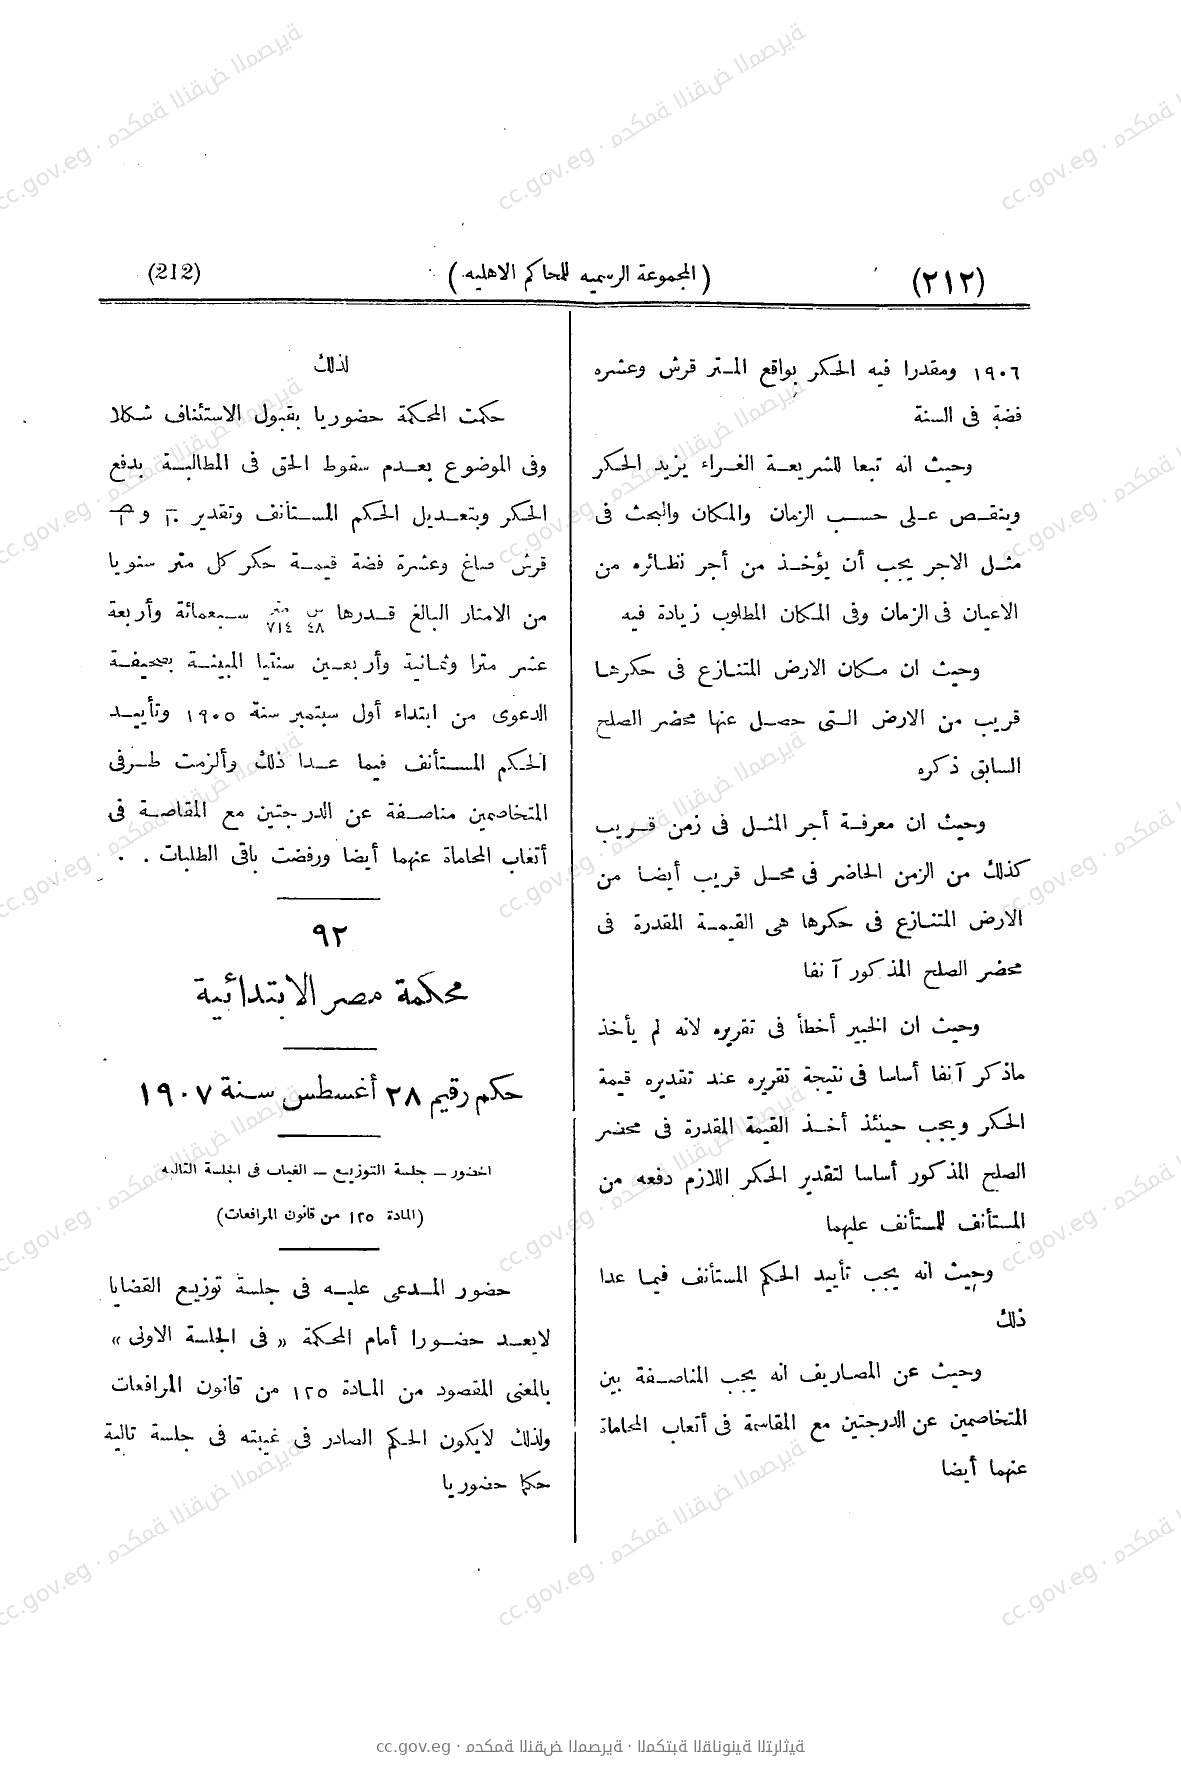 (٢١٢)
(المجموعة الرسميه للمحاكم الاهليه)
(212)
١٩٠٦ ومقدرا فيه الحكر بواقع المتر قرش وعشره
فضة فى السنة
وحيث انه تبعا للشريعة الغراء يزيد الحكر
وينقص على حسب الزمان والمكان والبحث فى
مثل الاجر يجب أن يؤخذ من أجر نظائره من
الاعيان فى الزمان وفى المكان المطلوب زيادة فيه
وحيث ان مكان الارض المتنازع فى حكرها
قريب من الارض التى حصل عنها محضر الصلح
السابق ذكره
وحيث ان معرفة أجر المثل فى زمن قريب
كذلك من الزمن الحاضر فى محل قريب أيضا من
الارض المتنازع فى حكرها هى القيمة المقدرة فى
محضر الصلح المذكور آنفا
وحيث ان الخبير أخطأ فى تقريره لانه لم يأخذ
ماذكر آنفا أساسا فى نتيجة تقريره عند تقديره قيمة
الحكر ويجب حينئذ أخذ القيمة المقدرة فى محضر
الصلح المذكور أساسا لتقدير الحكر اللازم دفعه من
المستأنف للمستأنف عليهما
وحيث انه يجب تأييد الحكم المستأنف فيما عدا
ذلك
وحيث عن المصاريف انه يجب المناصفة بين
المتخاصمين عن الدرجتين مع المقاسمة فى أتعاب المحاماة
عنهما أيضا
لذلك
حكمت المحكمة حضوريا بقبول الاستئناف شكلا
وفى الموضوع بعدم سقوط الحق فى المطالبة بدفع
الحكر وبتعديل الحكم المستأنف وتقدير و
قرش صاغ وعشرة فضة قيمة حكر كل متر سنويا
من الامتار البالغ قدرها س ٤٨ متر ٧١٤ سبعمائة وأربعة
عشر مترا وثمانية وأربعين سنتيا المبينة بصحيفة
الدعوى من ابتداء أول سبتمبر سنة ١٩٠٥ وتأييد
الحكم المستأنف فيما عدا ذلك وألزمت طرفى
المتخاصمين مناصفة عن الدرجتين مع المقاصة فى
أتعاب المحاماة عنهما أيضا ورفضت باقى الطلبات .
٩٢
محكمة مصر الابتدائية
حكم رقيم ٢٨ أغسطس سنة ١٩٠٧
الحضور – جلسة التوزيع – الغياب فى الجلسة التاليه
(المادة ١٢٥ من قانون المرافعات)
حضور المدعى عليه فى جلسة توزيع القضايا
لايعد حضورا أمام المحكمة « فى الجلسة الاولى »
بالمعنى المقصود من المادة ١٢٥ من قانون المرافعات
ولذلك لايكون الحكم الصادر فى غيبته فى جلسة تالية
حكما حضوريا
cc.gov.eg · محكمة النقض المصرية · المكتبة القانونية التراثية